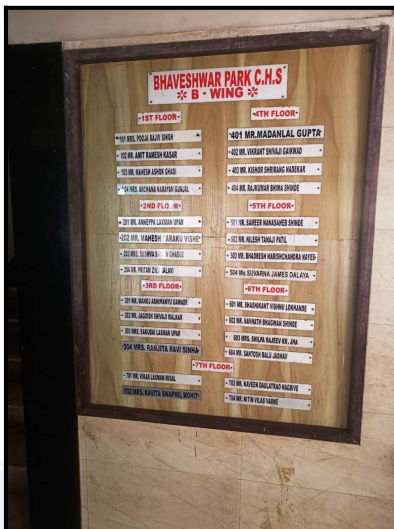 BHAVESHWAR PARK C.H.S
B - WING
1ST FLOOR
101 MRS. POOJA RAJIV SINGH
102 MR. AMIT RAMESH KASAR
103 MR. MAHESH ASHOK GHADI
104 MRS. ARCHANA NARAYAN GUNJAL
2ND FLOOR
201 MR. ANNEPPA LAXMAN UPAR
202 MR. MAHESH ARAKU VISHE
203 MRS. GHADGE
204 MR. PRITAM DALAVI
3RD FLOOR
301 MR. MANOJ ABHIMANYU GAWADE
302 MR. JAGDISH SHIVAJI MALKAR
303 MRS. SAKUBAI LAXMAN UPAR
304 MRS. RANJITA RAVI SINHA
4TH FLOOR
401 MR.MADANLAL GUPTA
402 MR. VIKRANT SHIVAJI GAIKWAD
403 MR. KISHOR SHRIRANG NADEKAR
404 MR. RAJKUMAR BHIMA SHINDE
5TH FLOOR
501 MR. SAMEER NANASAHEB SHINDE
502 MR. NILESH TANAJI PATIL
503 MR. BHADRESH HARISHCHANDRA
504 Ms. SUVARNA JAMES DALAYA
6TH FLOOR
601 MR. SHASHIKANT VISHNU LOKHANDE
602 MR. NAVNATH BHAGWAN SHINDE
603 MRS. SHILPA RAJEEV KR. JHA
604 MR. SANTOSH BALU JADHAV
7TH FLOOR
701 MR. VIKAS LAXMAN MISAL
702 MRS. KAVITA SWAPNIL MOHIT
703 MR. NAVEEN DAULATRAO NAGDIVE
704 MR. NITIN VILAS VARNE